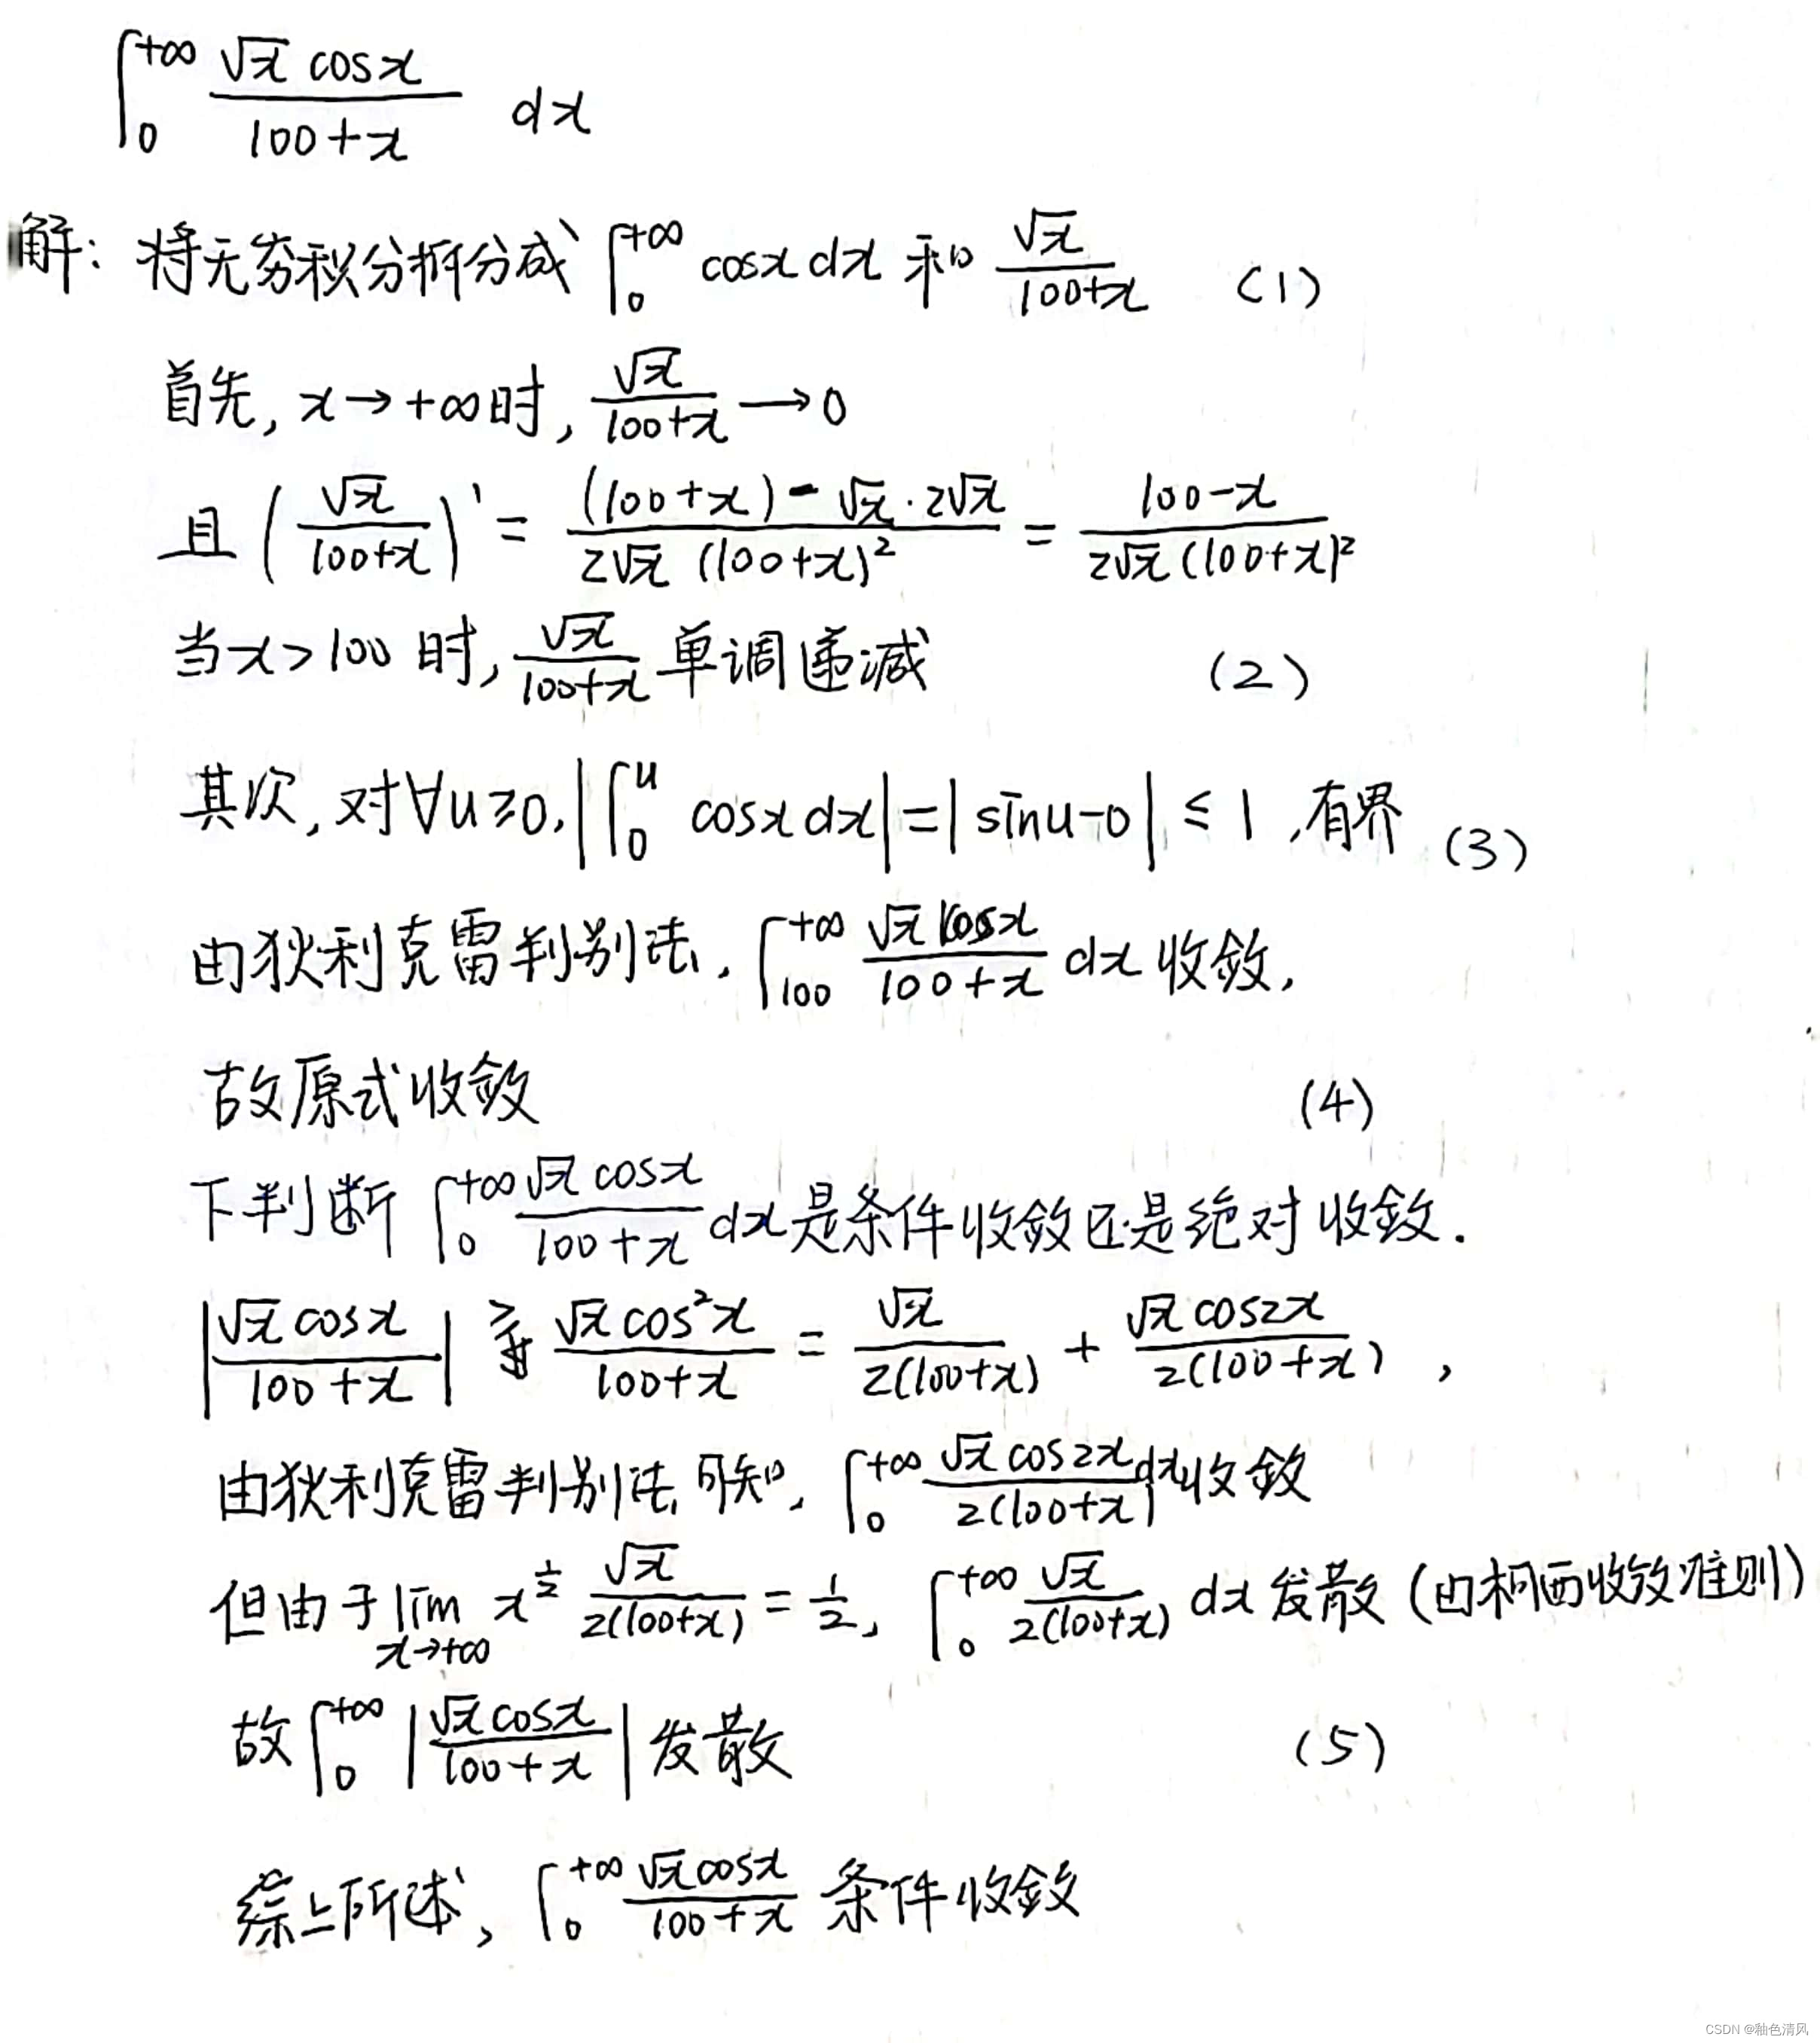 ∫₀^{+∞} (√x cosx)/(100+x) dx
解: 将无穷积分拆分成 ∫₀^{+∞} cosx dx 和 √x/(100+x) (1)
首先, x→+∞时, √x/(100+x) →0
且 (√x/(100+x))' = ((100+x)-√x·2√x)/(2√x (100+x)²) = (100-x)/(2√x(100+x)²)
当x>100时, √x/(100+x) 单调递减 (2)
其次, 对∀u≥0, |∫₀^u cosx dx| = |sinu-0| ≤ 1, 有界 (3)
由狄利克雷判别法, ∫₁₀₀^{+∞} (√x cosx)/(100+x) dx 收敛,
故原式收敛 (4)
下判断 ∫₀^{+∞} (√x cosx)/(100+x) dx是条件收敛还是绝对收敛.
|(√x cosx)/(100+x)| ≥ (√x cos²x)/(100+x) = √x/(2(100+x)) + (√x cos2x)/(2(100+x)),
由狄利克雷判别法可知, ∫₀^{+∞} (√x cos2x)/(2(100+x)) dx收敛
但由于 lim_{x→+∞} x^{1/2} √x/(2(100+x)) = 1/2, ∫₀^{+∞} √x/(2(100+x)) dx 发散 (由柯西收敛准则)
故 ∫₀^{+∞} |(√x cosx)/(100+x)| 发散 (5)
综上所述, ∫₀^{+∞} (√x cosx)/(100+x) 条件收敛
CSDN @釉色清风